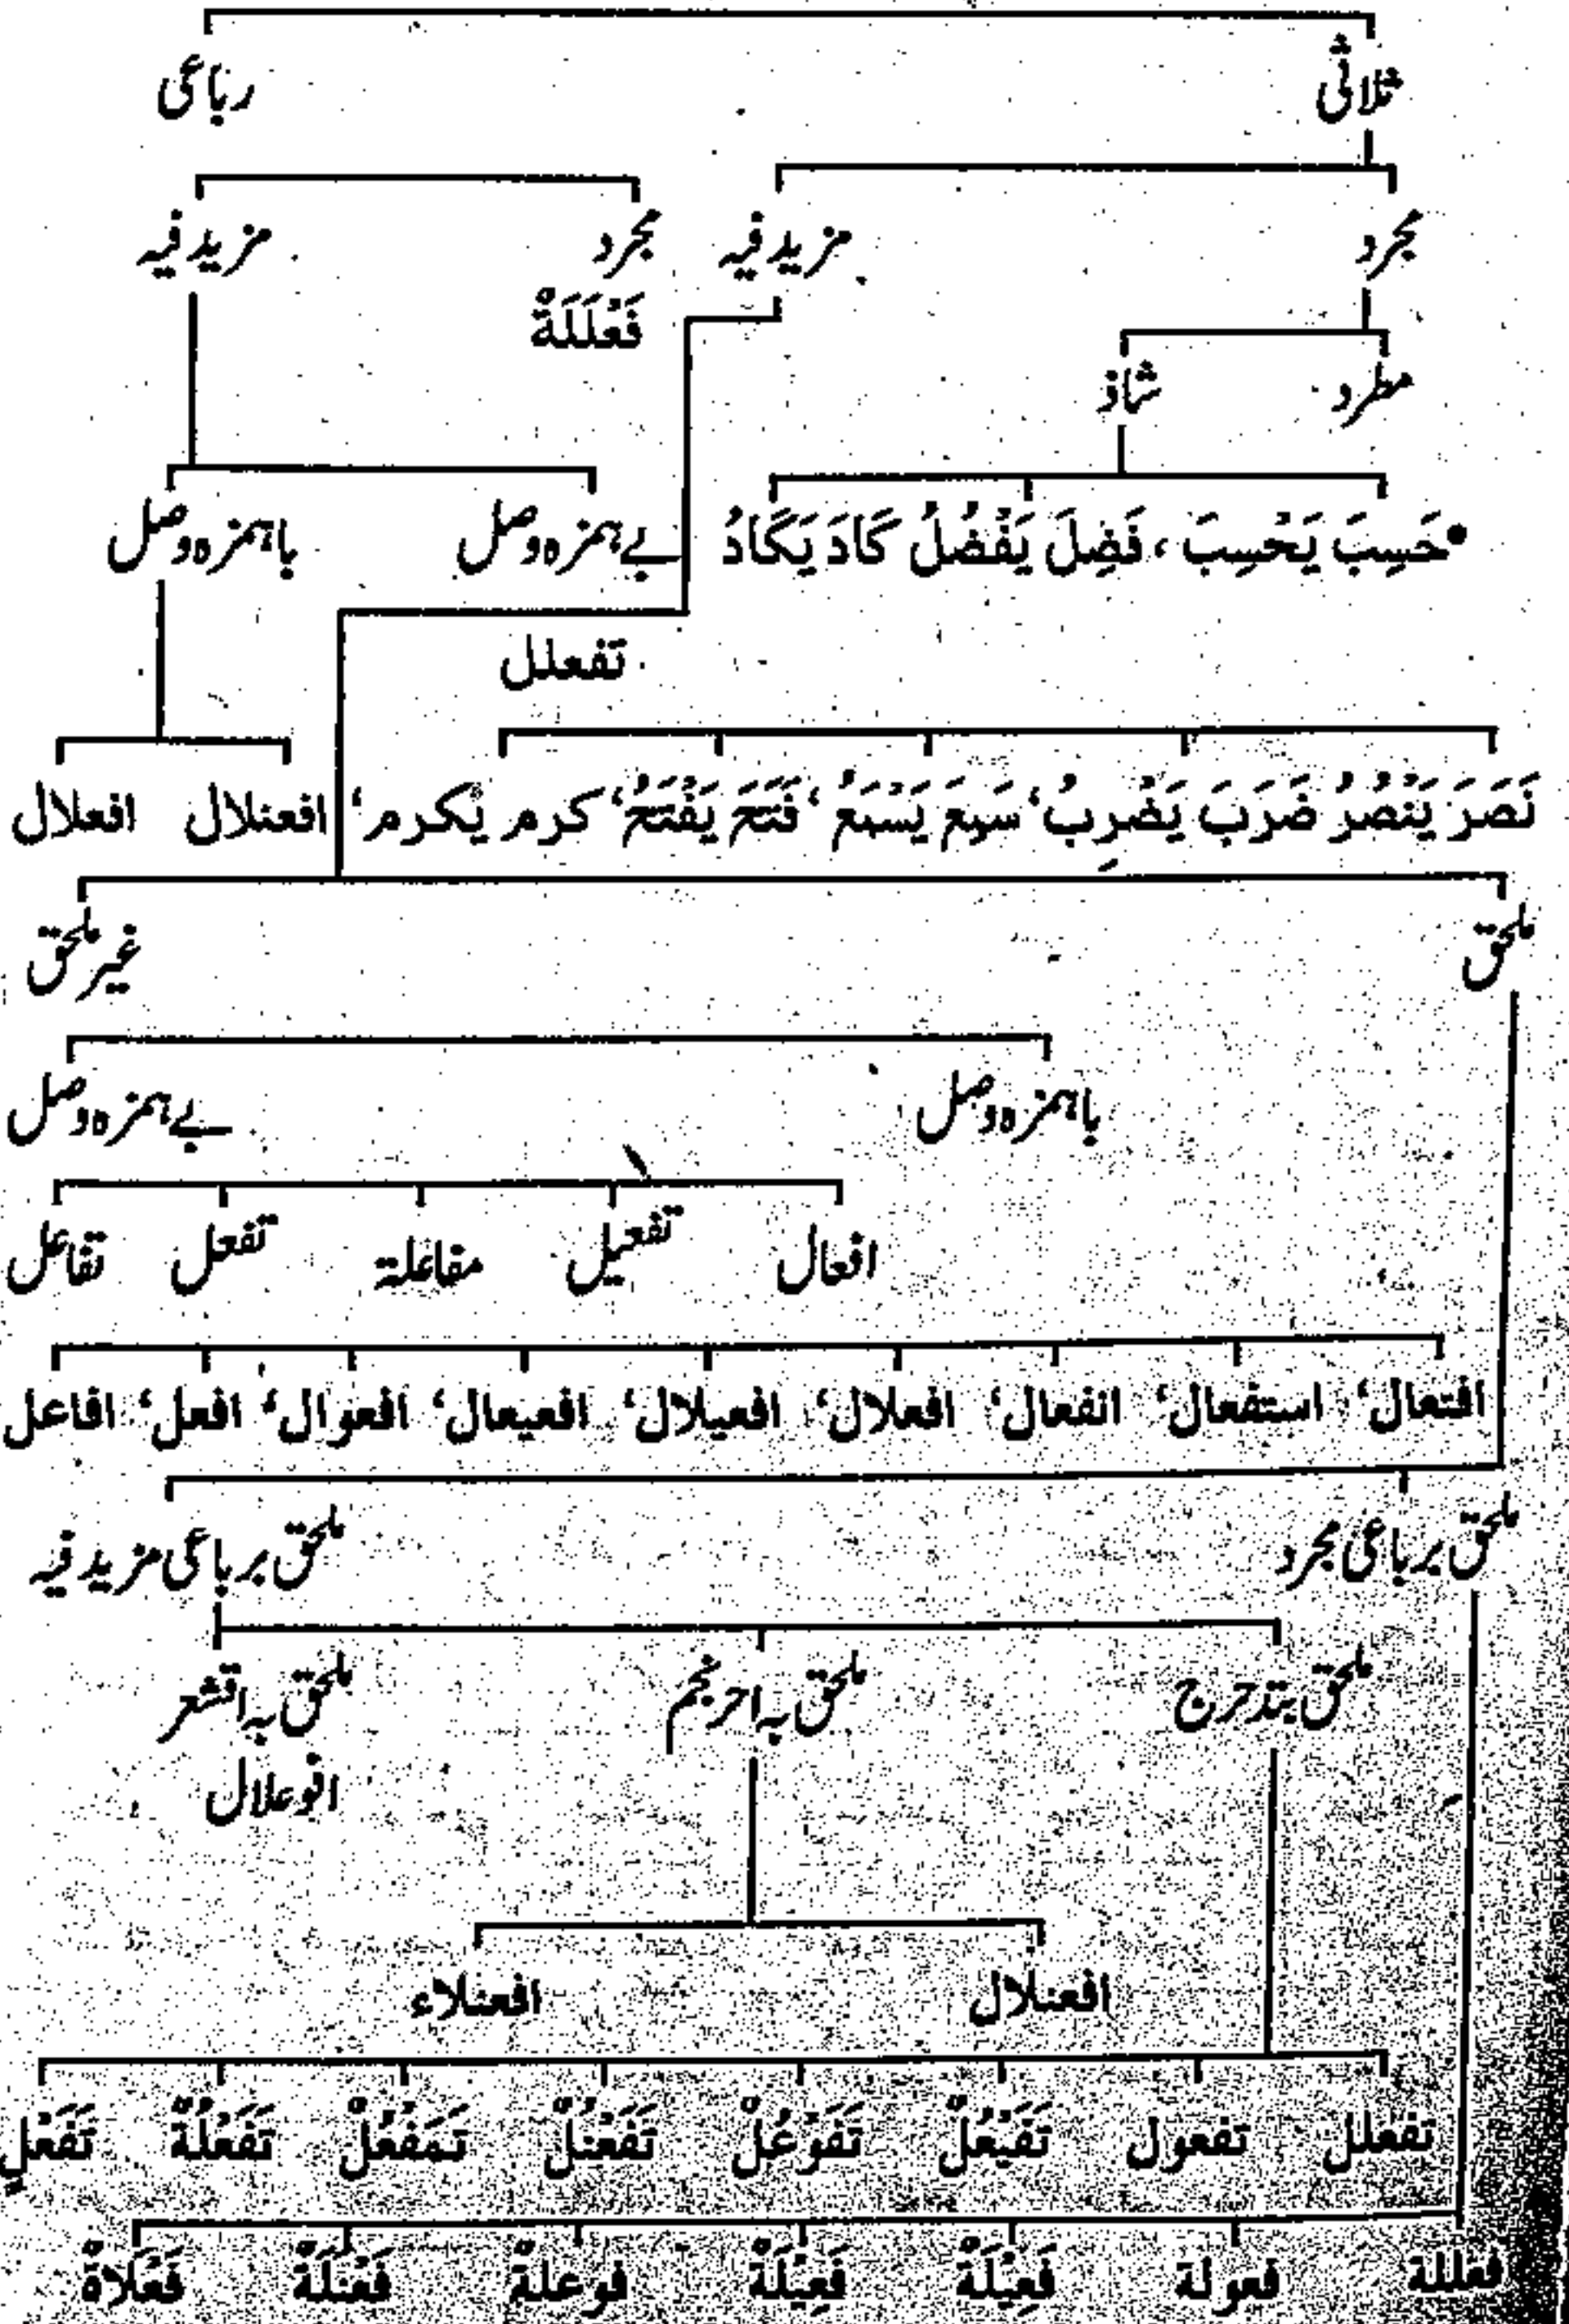 ثلاثی رباعی
مجرد مزید فیہ مجرد مزید فیہ
فَعْلَلَةٌ
مطرد شاذ
بے ہمزہ وصل باہمزہ وصل
حَسِبَ يَحْسِبَ ، فَضِلَ يَفْضُلُ كَادَ يَكَادُ
تفعلل
نَصَرَ يَنْصُرُ ضَرَبَ يَضْرِبُ، سَمِعَ يَسْمَعُ، فَتَحَ يَفْتَحُ، كرم يكرم، افعنلال افعلال
ملحق غیر ملحق
باہمزہ وصل بے ہمزہ وصل
افعال تفعیل مفاعلة تفعل تفاعل
افتعال، استفعال، انفعال، افعلال، افعيلال، افعيعال، افعوال، افعل، افاعل
ملحق برباعی مجرد ملحق برباعی مزید فیہ
ملحق بتدحرج ملحق بہ احرنجم ملحق بہ اقشعر
افوعلال
افعنلال افعنلاء
تفعلل تفعول تَفَيْعُلْ تَفَوْعُلْ تَفَعْنُلْ تَمَفْعُلْ تَفَعْلُةْ تَفَعْلٍ
فعللة فعولة فَعِيْلَةْ فَعِيْلَةْ فوعلة فَعْنَلَةْ فَعْلَاةْ